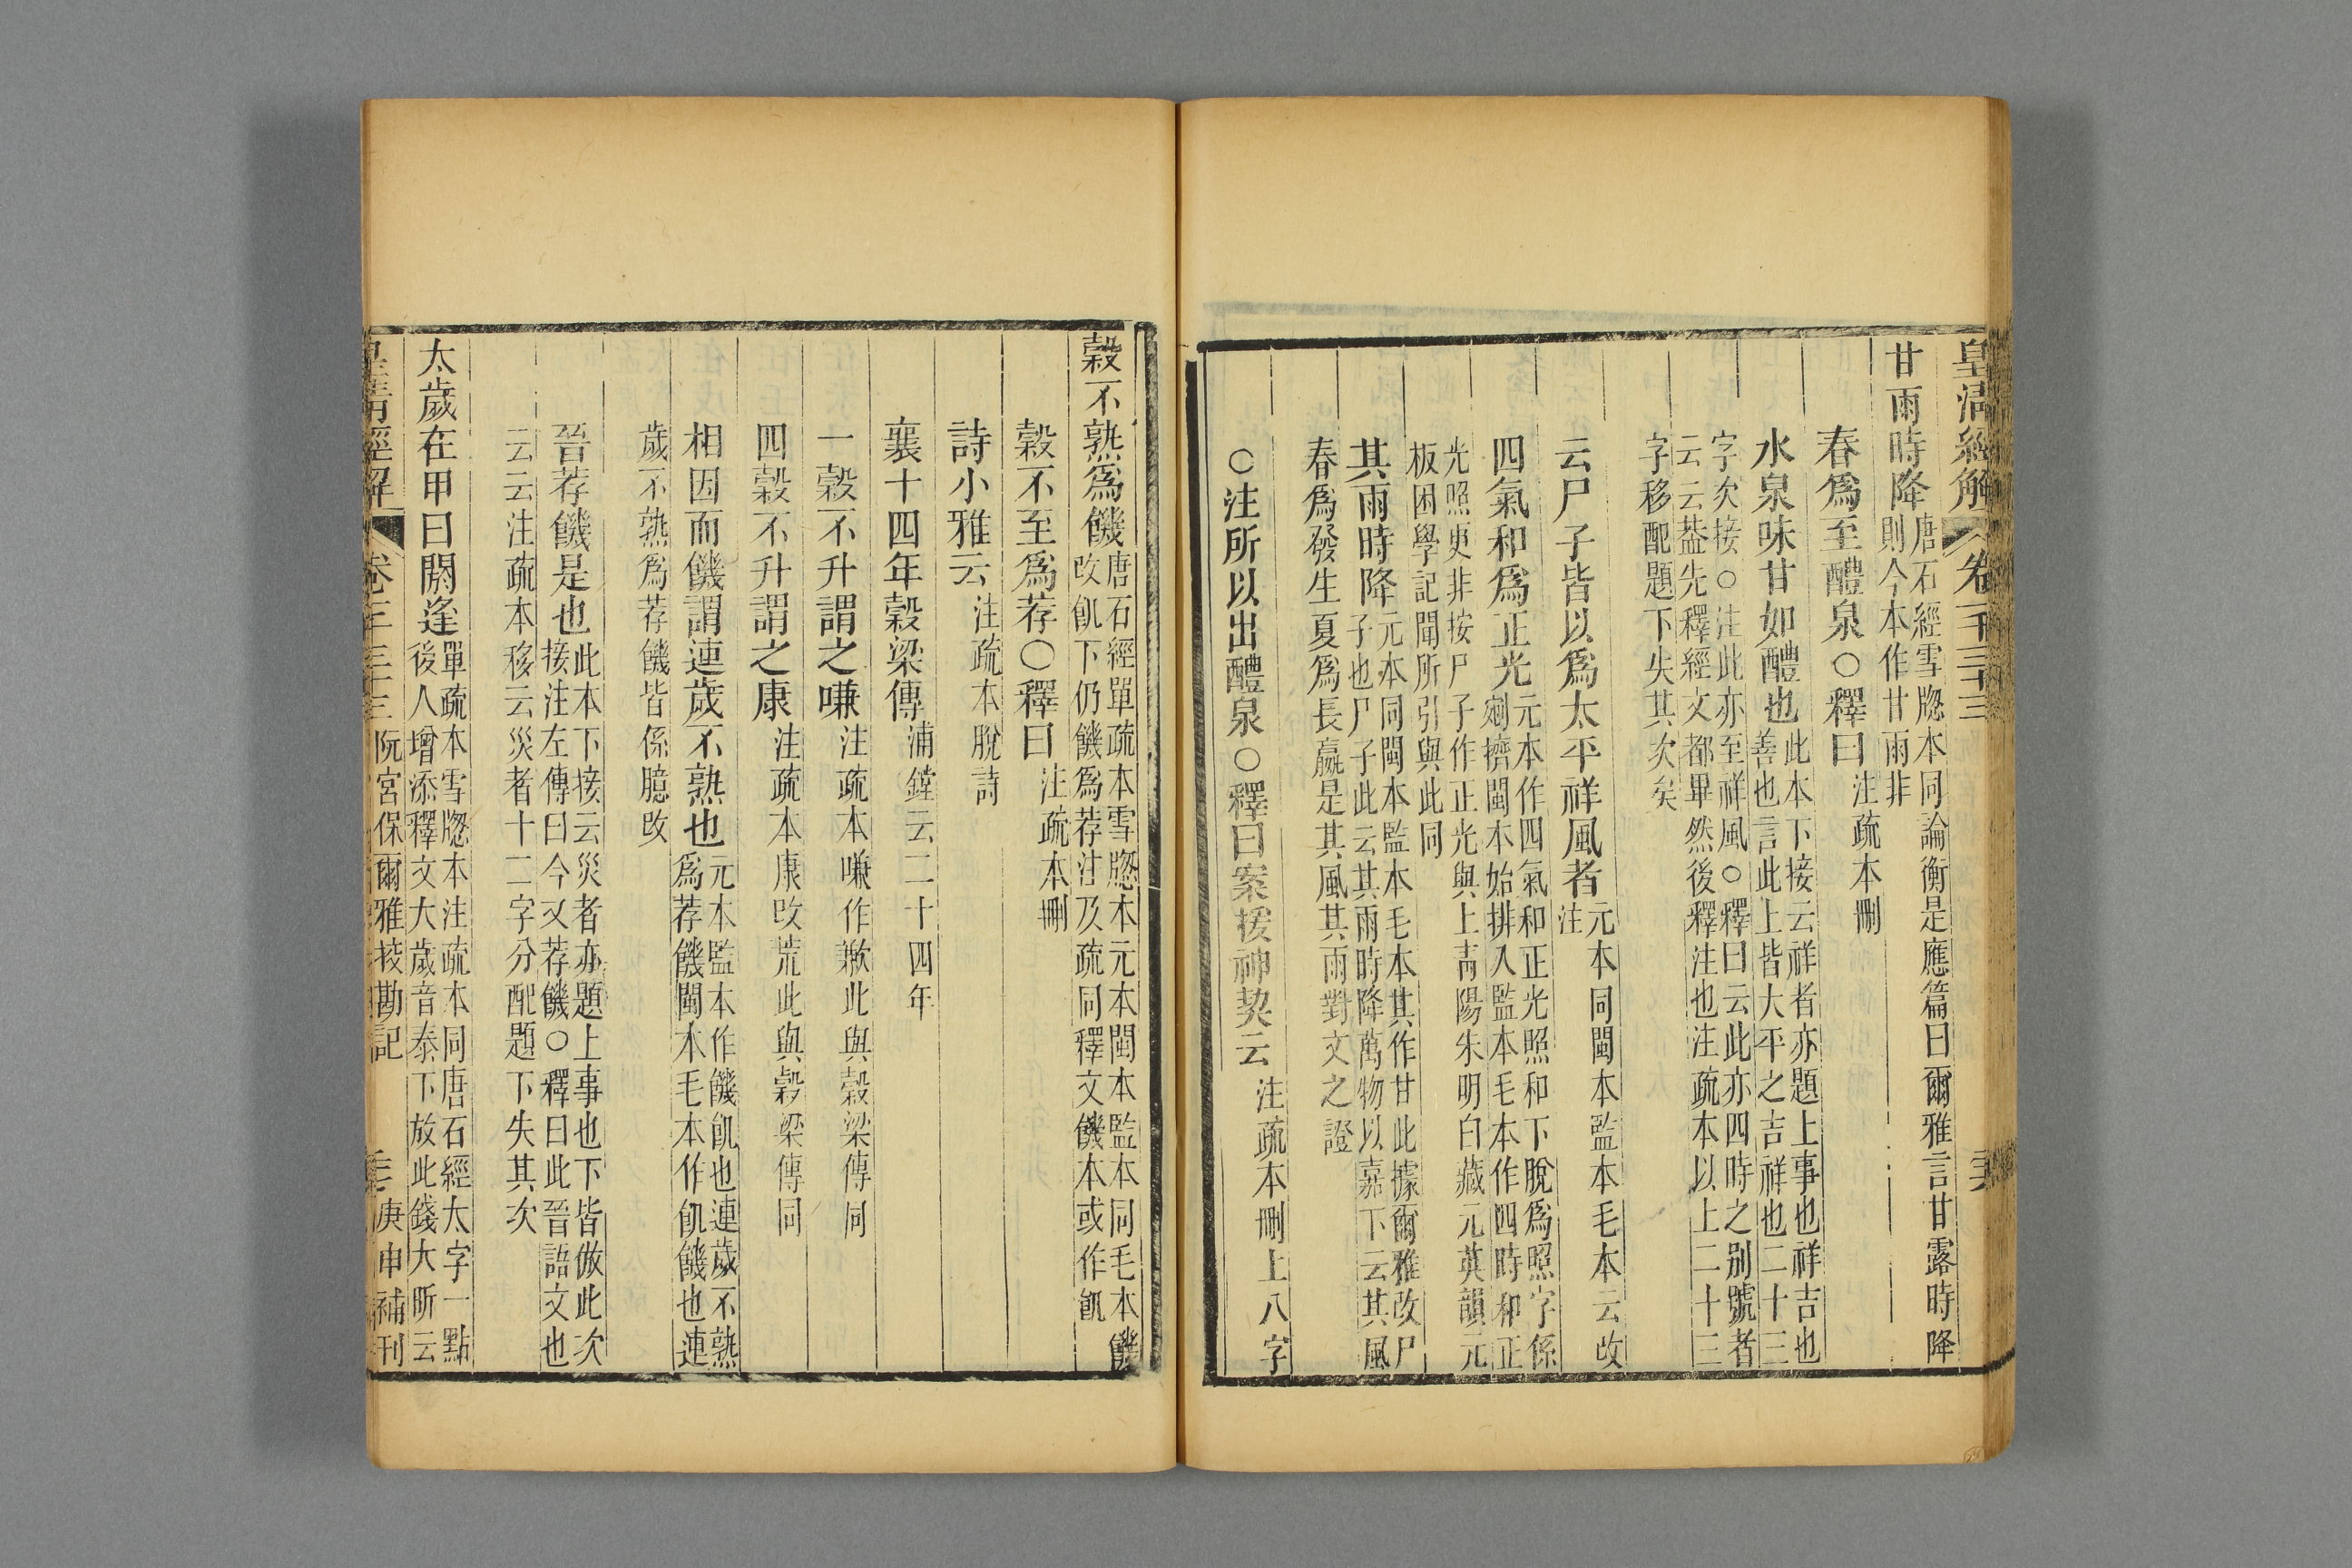 皇清經解 卷一千三十三
甘雨時降唐石經雪牎本同論衡是應篇曰爾雅言甘露時降
則今本作甘雨非
春爲至醴泉○釋曰注疏本刪
水泉味甘如醴也此本下接云祥者亦題上事也祥吉也
善也言此上皆大平之吉祥也二十三
字次接○注此亦至祥風○釋曰云此亦四時之别號者
云云葢先釋經文都畢然後釋注也注疏本以上二十三
字移配題下失其次矣
云尸子皆以爲太平祥風者元本同閩本監本毛本云改
注
四氣和爲正光元本作四氣和正光照和下脫爲照字係
剜擠閩本始排入監本毛本作四時和正
光照更非按尸子作正光與上靑陽朱明白藏元英韻元
板困學記聞所引與此同
其雨時降元本同閩本監本毛本其作甘此據爾雅改尸
子也尸子此云其雨時降萬物以嘉下云其風
春爲發生夏爲長嬴是其風其雨對文之證
○注所以出醴泉○釋曰案援神契云注疏本刪上八字
穀不熟爲饑唐石經單疏本雪牎本元本閩本監本同毛本饑
改飢下仍饑爲荐注及疏同釋文饑本或作飢
穀不至爲荐○釋曰注疏本刪
詩小雅云注疏本脫詩
襄十四年穀梁傳浦鏜云二十四年
一穀不升謂之嗛注疏本嗛作歉此與穀梁傳同
四穀不升謂之康注疏本康改荒此與穀梁傳同
相因而饑謂連歲不熟也元本監本作饑飢也連歲不熟
爲荐饑閩本毛本作飢饑也連
歲不熟爲荐饑皆係臆改
晉荐饑是也此本下接云災者亦題上事也下皆倣此次
接注左傳曰今又荐饑○釋曰此晉語文也
云云注疏本移云災者十二字分配題下失其次
太歲在甲曰閼逢單疏本雪牎本注疏本同唐石經太字一點
後人增添釋文大歲音泰下放此錢大昕云
皇清經解 卷一千三十三 阮宮保爾雅挍勘記 庚申補刊